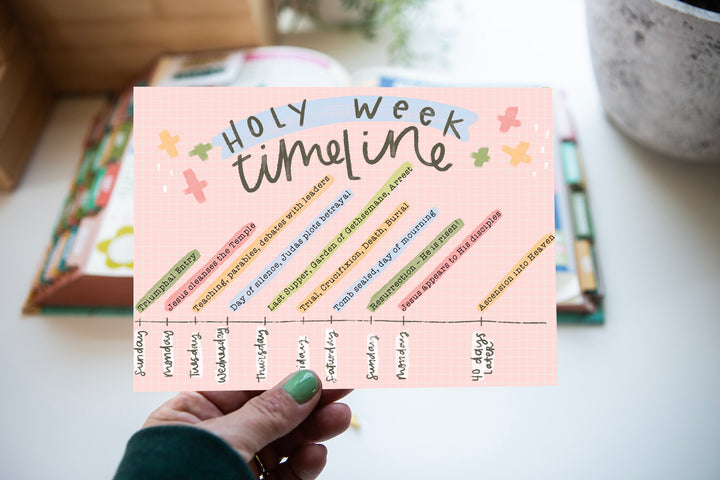 HOLY WEEK
timeline
Triumphal Entry
Jesus cleanses the Temple
Teaching, parables, debates with leaders
Day of silence, Judas plots betrayal
Last Supper, Garden of Gethsemane, Arrest
Trial, Crucifixion, Death, Burial
Tomb sealed, day of mourning
Resurrection - He is risen!
Jesus appears to His disciples
Ascension into Heaven
Sunday
Monday
Tuesday
Wednesday
Thursday
riday
Saturday
Sunday
Monday
40 days
Later